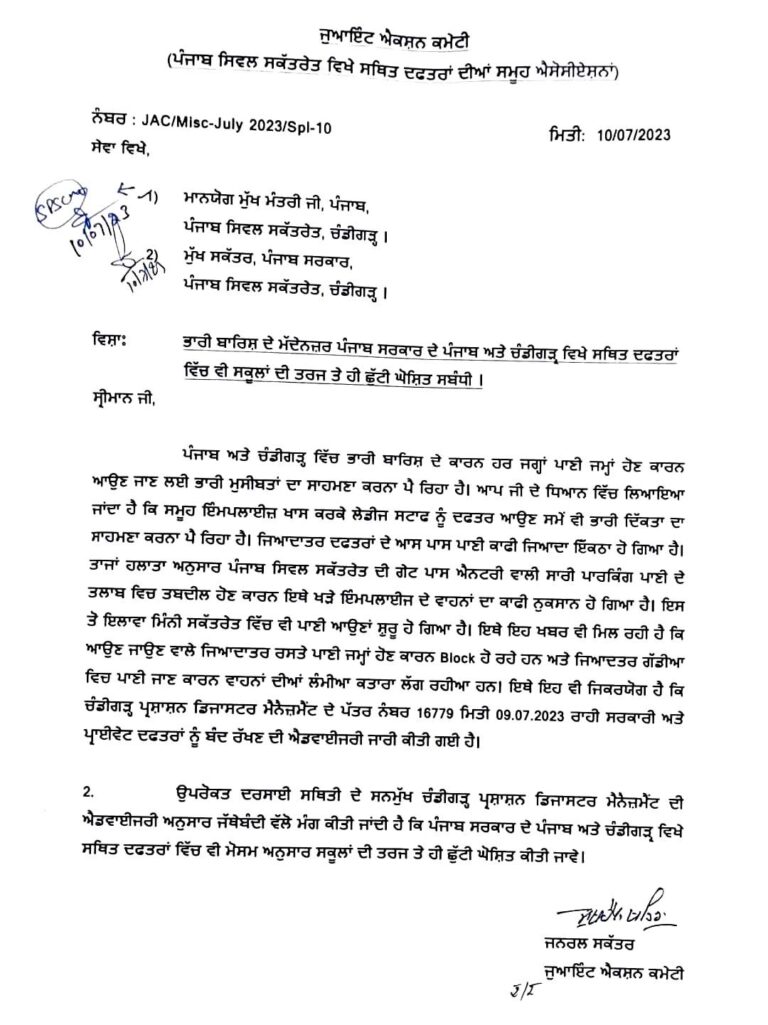 ਜੁਆਇੰਟ ਐਕਸ਼ਨ ਕਮੇਟੀ
(ਪੰਜਾਬ ਸਿਵਲ ਸਕੱਤਰੇਤ ਵਿਖੇ ਸਥਿਤ ਦਫਤਰਾਂ ਦੀਆਂ ਸਮੂਹ ਐਸੋਸੀਏਸ਼ਨਾਂ)
ਨੰਬਰ : JAC/Misc-July 2023/Spl-10
ਮਿਤੀ: 10/07/2023
ਸੇਵਾ ਵਿਖੇ,
1) ਮਾਨਯੋਗ ਮੁੱਖ ਮੰਤਰੀ ਜੀ, ਪੰਜਾਬ,
10/07/23
ਪੰਜਾਬ ਸਿਵਲ ਸਕੱਤਰੇਤ, ਚੰਡੀਗੜ੍ਹ ।
2) ਮੁੱਖ ਸਕੱਤਰ, ਪੰਜਾਬ ਸਰਕਾਰ,
ਪੰਜਾਬ ਸਿਵਲ ਸਕੱਤਰੇਤ, ਚੰਡੀਗੜ੍ਹ ।
ਵਿਸ਼ਾ: ਭਾਰੀ ਬਾਰਿਸ਼ ਦੇ ਮੱਦੇਨਜ਼ਰ ਪੰਜਾਬ ਸਰਕਾਰ ਦੇ ਪੰਜਾਬ ਅਤੇ ਚੰਡੀਗੜ੍ਹ ਵਿਖੇ ਸਥਿਤ ਦਫਤਰਾਂ
ਵਿੱਚ ਵੀ ਸਕੂਲਾਂ ਦੀ ਤਰਜ ਤੇ ਹੀ ਛੁੱਟੀ ਘੋਸ਼ਿਤ ਸਬੰਧੀ ।
ਸ੍ਰੀਮਾਨ ਜੀ,
ਪੰਜਾਬ ਅਤੇ ਚੰਡੀਗੜ੍ਹ ਵਿੱਚ ਭਾਰੀ ਬਾਰਿਸ਼ ਦੇ ਕਾਰਨ ਹਰ ਜਗ੍ਹਾਂ ਪਾਣੀ ਜਮ੍ਹਾਂ ਹੋਣ ਕਾਰਨ
ਆਉਣ ਜਾਣ ਲਈ ਭਾਰੀ ਮੁਸੀਬਤਾਂ ਦਾ ਸਾਹਮਣਾ ਕਰਨਾ ਪੈ ਰਿਹਾ ਹੈ। ਆਪ ਜੀ ਦੇ ਧਿਆਨ ਵਿੱਚ ਲਿਆਇਆ
ਜਾਂਦਾ ਹੈ ਕਿ ਸਮੂਹ ਇੰਮਪਲਾਈਜ਼ ਖਾਸ ਕਰਕੇ ਲੇਡੀਜ ਸਟਾਫ ਨੂੰ ਦਫਤਰ ਆਉਣ ਸਮੇਂ ਵੀ ਭਾਰੀ ਦਿੱਕਤਾ ਦਾ
ਸਾਹਮਣਾ ਕਰਨਾ ਪੈ ਰਿਹਾ ਹੈ। ਜਿਆਦਾਤਰ ਦਫਤਰਾਂ ਦੇ ਆਸ ਪਾਸ ਪਾਣੀ ਕਾਫੀ ਜਿਆਦਾ ਇੱਕਠਾ ਹੋ ਗਿਆ ਹੈ।
ਤਾਜਾਂ ਹਲਾਤਾ ਅਨੁਸਾਰ ਪੰਜਾਬ ਸਿਵਲ ਸਕੱਤਰੇਤ ਦੀ ਗੇਟ ਪਾਸ ਐਨਟਰੀ ਵਾਲੀ ਸਾਰੀ ਪਾਰਕਿੰਗ ਪਾਣੀ ਦੇ
ਤਲਾਬ ਵਿਚ ਤਬਦੀਲ ਹੋਣ ਕਾਰਨ ਇਥੇ ਖੜੇ ਇੰਮਪਲਾਈਜ ਦੇ ਵਾਹਨਾਂ ਦਾ ਕਾਫੀ ਨੁਕਸਾਨ ਹੋ ਗਿਆ ਹੈ। ਇਸ
ਤੋਂ ਇਲਾਵਾ ਮਿੰਨੀ ਸਕੱਤਰੇਤ ਵਿੱਚ ਵੀ ਪਾਣੀ ਆਉਣਾਂ ਸ਼ੁਰੂ ਹੋ ਗਿਆ ਹੈ। ਇਥੇ ਇਹ ਖਬਰ ਵੀ ਮਿਲ ਰਹੀ ਹੈ ਕਿ
ਆਉਣ ਜਾਉਣ ਵਾਲੇ ਜਿਆਦਾਤਰ ਰਸਤੇ ਪਾਣੀ ਜਮ੍ਹਾਂ ਹੋਣ ਕਾਰਨ Block ਹੋ ਰਹੇ ਹਨ ਅਤੇ ਜਿਆਦਤਰ ਗੱਡੀਆ
ਵਿਚ ਪਾਣੀ ਜਾਣ ਕਾਰਨ ਵਾਹਨਾਂ ਦੀਆਂ ਲੰਮੀਆ ਕਤਾਰਾ ਲੱਗ ਰਹੀਆ ਹਨ। ਇਥੇ ਇਹ ਵੀ ਜਿਕਰਯੋਗ ਹੈ ਕਿ
ਚੰਡੀਗੜ੍ਹ ਪ੍ਰਸ਼ਾਸ਼ਨ ਡਿਜਾਸਟਰ ਮੈਨੈਜ਼ਮੈਂਟ ਦੇ ਪੱਤਰ ਨੰਬਰ 16779 ਮਿਤੀ 09.07.2023 ਰਾਹੀ ਸਰਕਾਰੀ ਅਤੇ
ਪ੍ਰਾਈਵੇਟ ਦਫਤਰਾਂ ਨੂੰ ਬੰਦ ਰੱਖਣ ਦੀ ਐਡਵਾਈਜਰੀ ਜਾਰੀ ਕੀਤੀ ਗਈ ਹੈ।
2. ਉਪਰੋਕਤ ਦਰਸਾਈ ਸਥਿਤੀ ਦੇ ਸਨਮੁੱਖ ਚੰਡੀਗੜ੍ਹ ਪ੍ਰਸ਼ਾਸ਼ਨ ਡਿਜਾਸਟਰ ਮੈਨੈਜ਼ਮੈਂਟ ਦੀ
ਐਡਵਾਈਜਰੀ ਅਨੁਸਾਰ ਜੱਥੇਬੰਦੀ ਵੱਲੋ ਮੰਗ ਕੀਤੀ ਜਾਂਦੀ ਹੈ ਕਿ ਪੰਜਾਬ ਸਰਕਾਰ ਦੇ ਪੰਜਾਬ ਅਤੇ ਚੰਡੀਗੜ੍ਹ ਵਿਖੇ
ਸਥਿਤ ਦਫਤਰਾਂ ਵਿੱਚ ਵੀ ਮੋਸਮ ਅਨੁਸਾਰ ਸਕੂਲਾਂ ਦੀ ਤਰਜ ਤੇ ਹੀ ਛੁੱਟੀ ਘੋਸ਼ਿਤ ਕੀਤੀ ਜਾਵੇ।
ਜਨਰਲ ਸਕੱਤਰ
ਜੁਆਇੰਟ ਐਕਸ਼ਨ ਕਮੇਟੀ